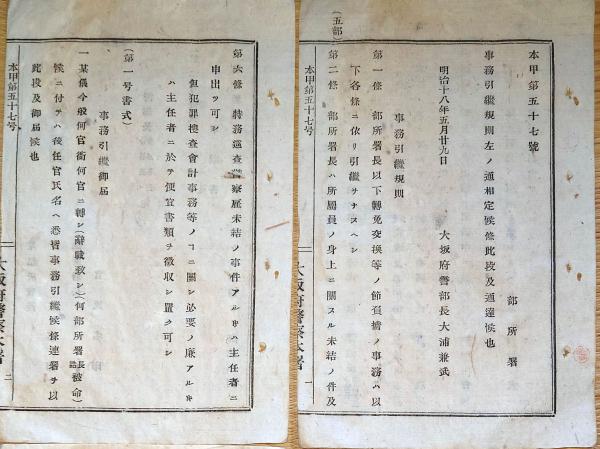 本甲第五十七號
部所署
事務引繼規則左ノ通相定候條此段及通達候也
明治十八年五月廿九日
大坂府警部長大浦兼武
事務引繼規則
第一條 部所署長以下轉免交換等ノ節負擔ノ事務ハ以
下各條ニ依リ引繼ヲナスヘシ
第二條 部所署長ハ所屬員ノ身上ニ關スル未結ノ件及
(五部)
本甲第五十七号
大阪府警察本署
一
第六條 特務巡査警察雇未結ノ事件アルトキハ主任者ニ
申出ヅ可シ
但犯罪捜査會計事務等ノヿニ關シ必要ノ廉アルトキ
ハ主任者ニ於テ便宜書類ヲ徴収シ置ク可シ
(第一号書式)
事務引繼御届
一某儀今般何官衙何官ニ轉シ(辭職致シ)(何部所署長被命)
候ニ付テハ後任官氏名ヘ悉皆事務引繼候條連署ヲ以
此段及御届候也
本甲第五十七号
大阪府警察本署
二